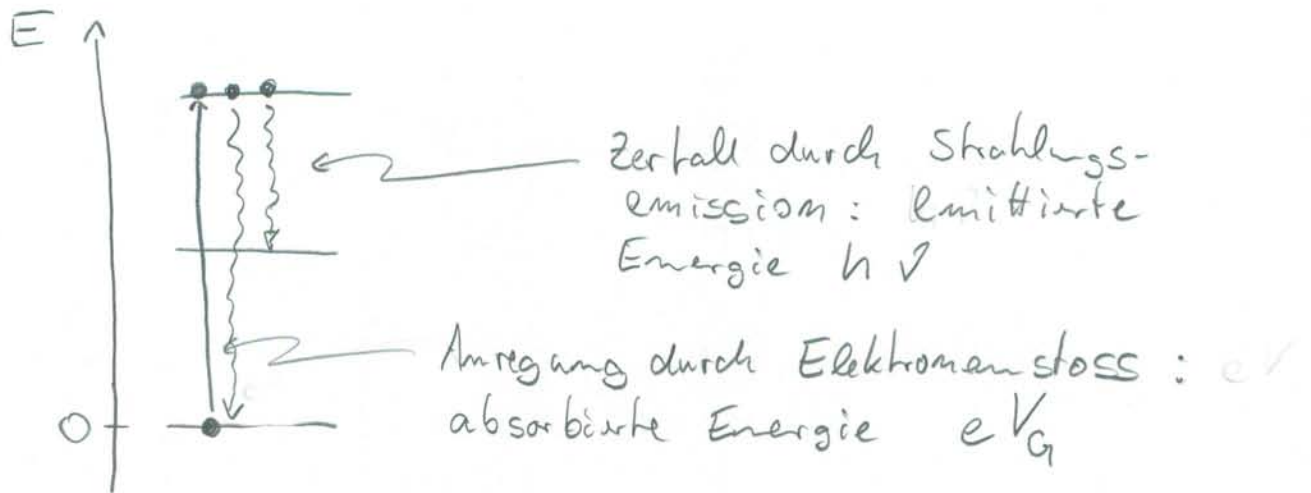 E
Zerfall durch Strahlungs-
emission: emittierte
Energie h ν
Anregung durch Elektronenstoss:
absorbierte Energie e V_G
0